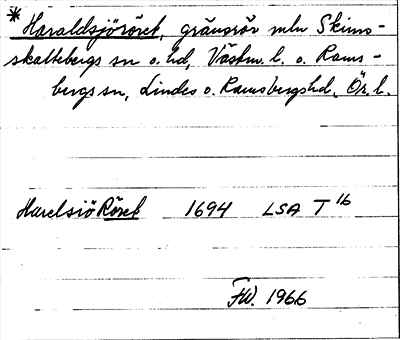 * Haraldsjöröret, gränsrör mln Skinns-
skattebergs sn o. hd, Västm. l. o. Rams-
bergs sn, Lindes o. Ramsbergs hd, Ör. l.
Harelsiö Röret 1694 LSA T 16
FW. 1966